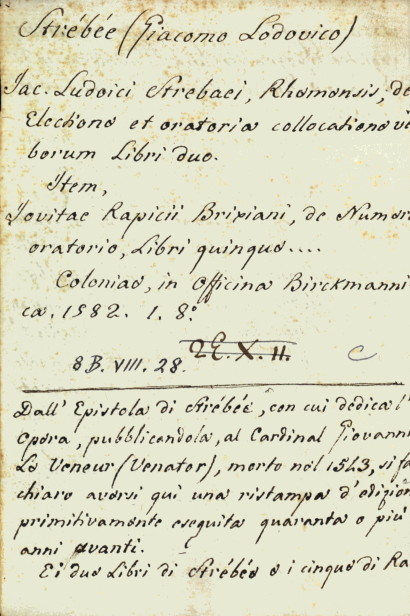 Strébée (Giacomo Lodovico)
Jac. Ludoici Strebaei, Rhemensis, de
Electione et oratoria collocatione ve
borum Libri duo.
Item,
Jovitae Rapicii Brixiani, de Numero
oratorio, Libri quinque....
Coloniae, in Officina Birckmanni
ca. 1582. 1. 8.º
2E. X. 11.
8B. VIII. 28. C
Dall' Epistola di Strébée, con cui dedica l'
opera, pubblicandola, al Cardinal Giovanni
Le Veneur (Venator), morto nel 1543, si fa
chiaro aversi qui una ristampa d'edizione
primitivamente eseguita quaranta o più
anni avanti.
Ei due Libri di Strébée e i cinque di Ra